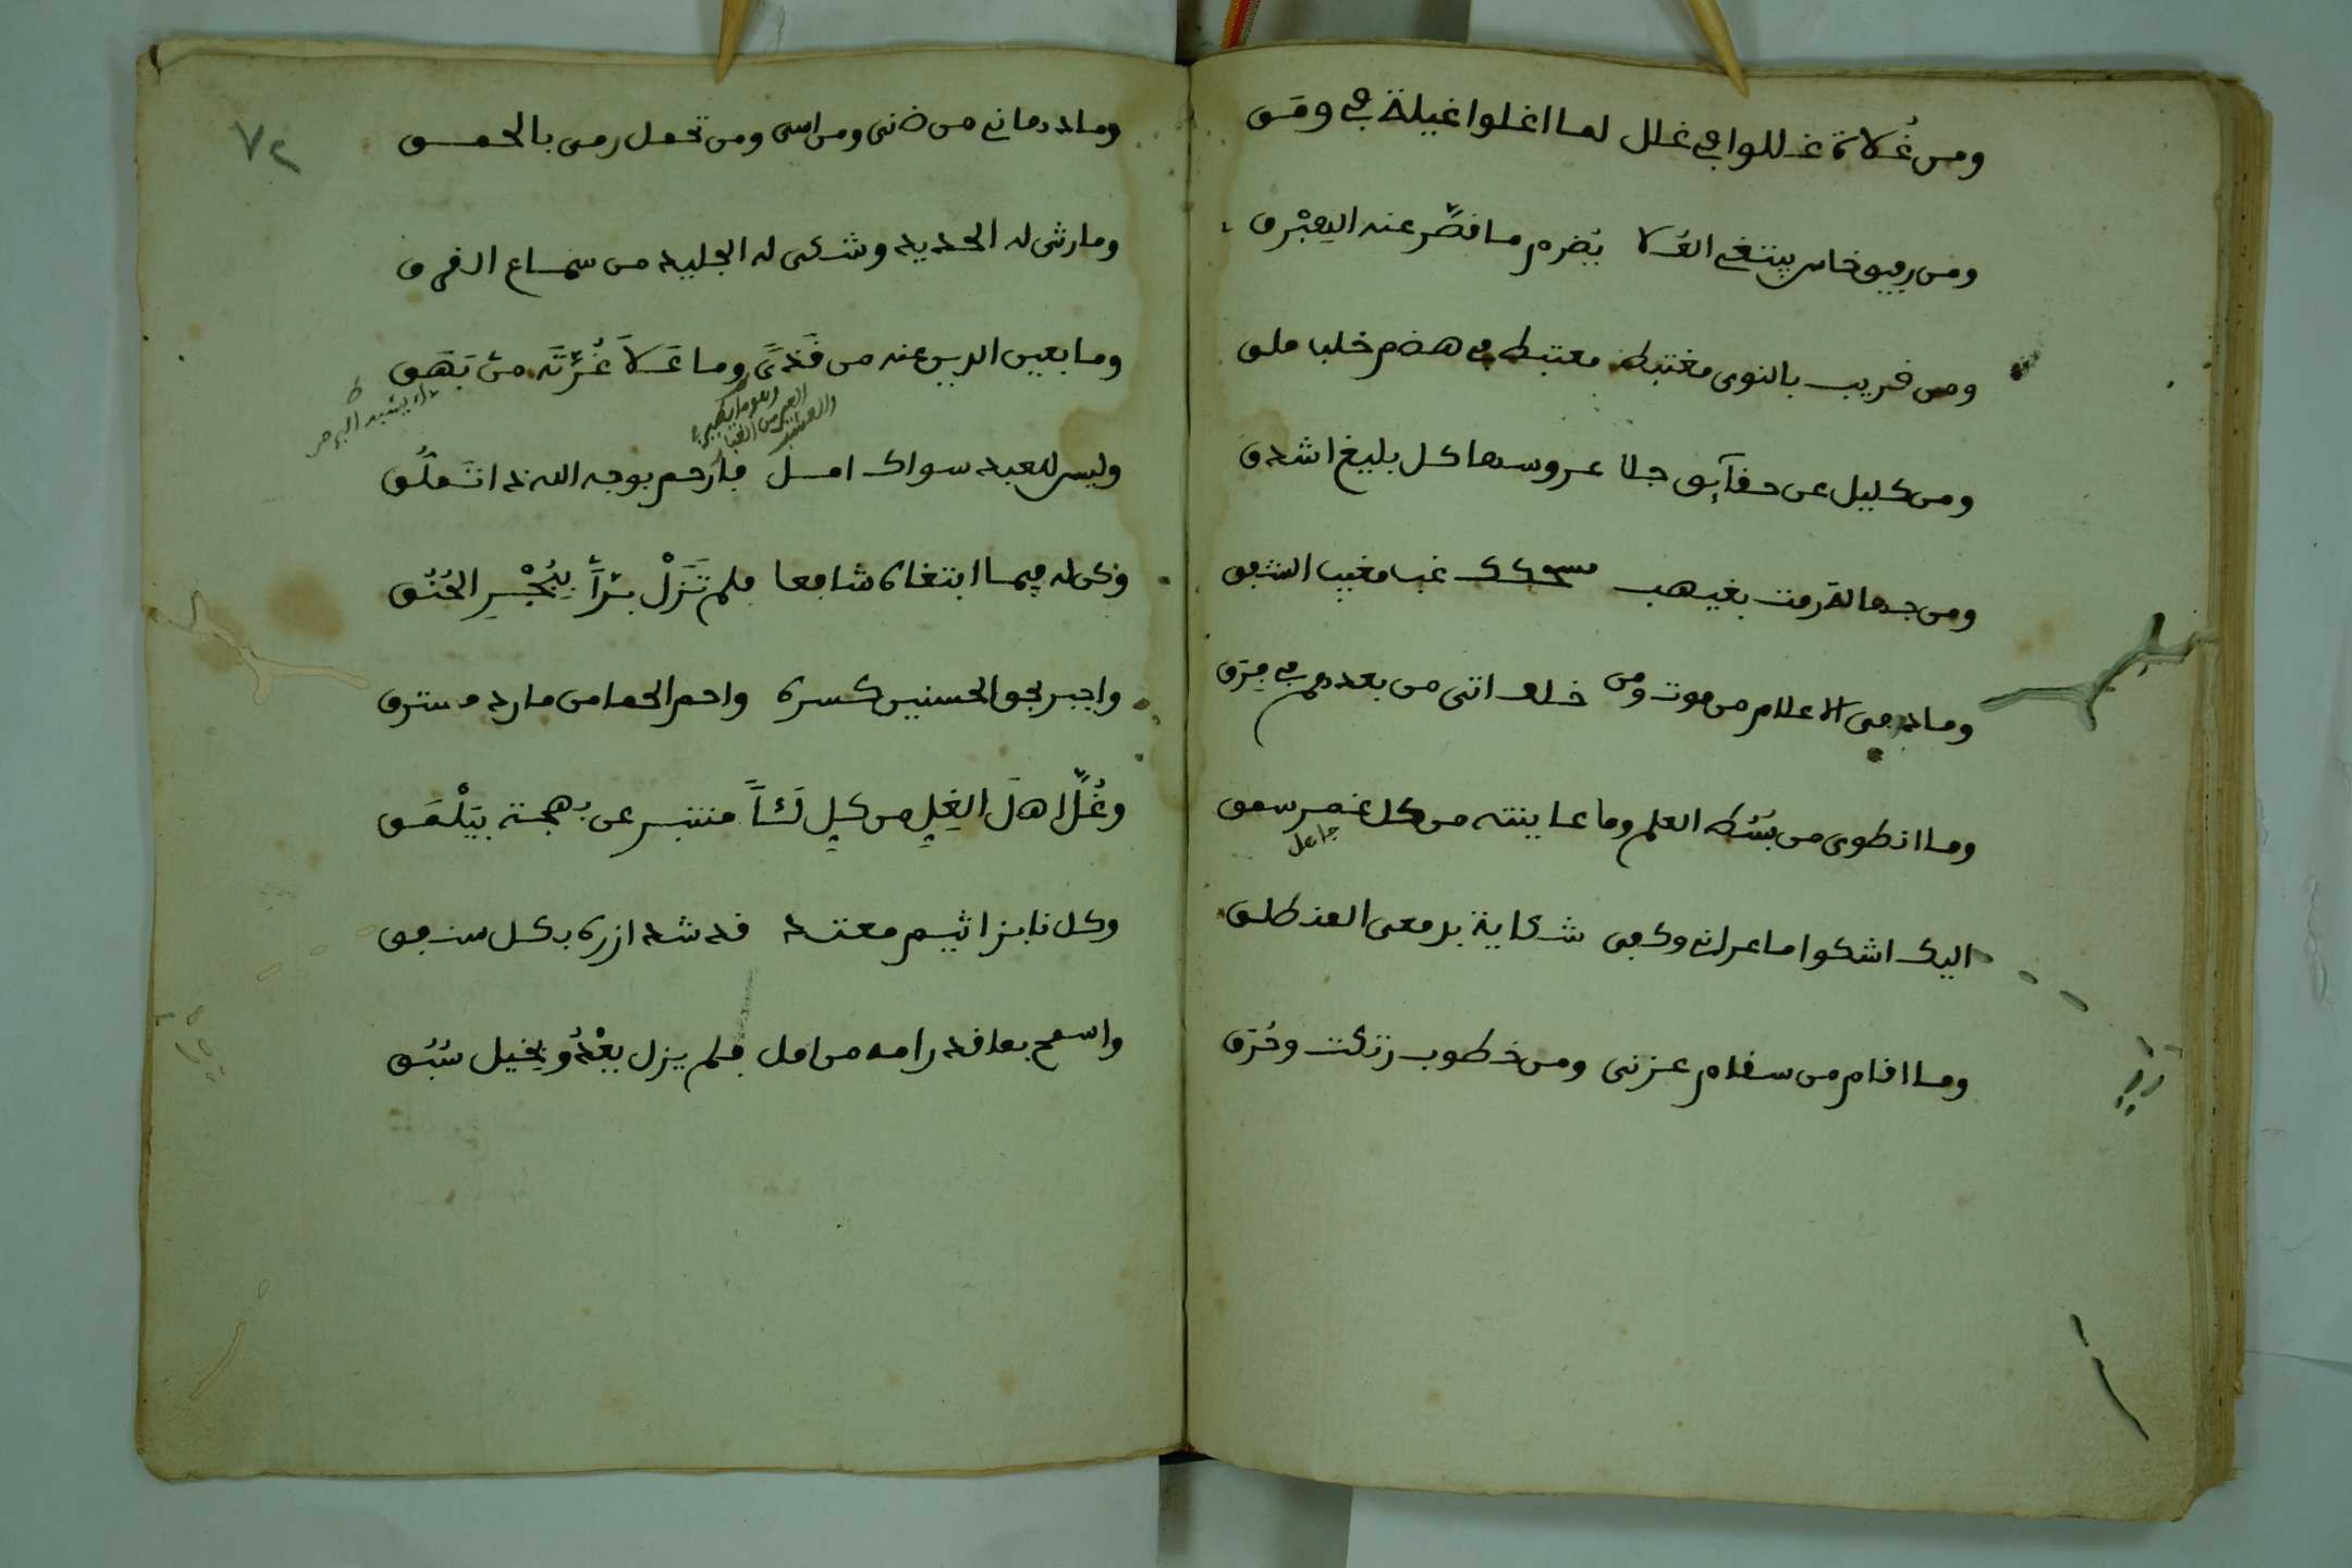 ومن غُلاة غللوا في غلل لما اغلوا غيلة في ومَق
ومن رفيق خامر يبتغي العُلا يُضرم ما قصَّر عنه اليعبْرق
ومن قريب بالنوى مغتبط معتبط في هضم خلب ملق
ومن كليل عن حقآئق جلا عروسها كل بليغ اشدق
ومن جهالة رمت بغيهب مسحكك غب مغيب الشفق
وما دهى الاعلام من موت ومن خلف اتى من بعدهم في فِرَق
وما انطوى من بُسُط العلم وما عاينته من كل غمر سمق
جاهل
اليك اشكوا ما عراني وكفى شكاية بدمعي المنطلق
وما اقام من سقام عزني ومن خطوب رتكت وحُرَق
٧٢
وما درماني من ضنى ومن اسى ومن تحمل رمى بالحمق
وما رثى له الحديد وشكى له الجليد من سماع الفرق
وما بعين الدين عنه من قَذىً وما عَلاَ غُرَّتَه من بَهَق
داء يشبه البرص
وهو ما يكبر في العين من
وليس للعبد سواك امل فارحم بوجه الله ذا تَملُّق
وكن له فيما ابتغاه شافعا فلم تَزَلْ بَرّاً بِيُجْبِرِ الحُنُق
واجبر بحق الحسنين كسره واحم الحما من مارد مسترق
وغُلَّ اهلَ الغِلِّ من كلِّ منتبر عن بهجة بيَلْمَق
وكل نابز اثيم معتد قد شد ازره بكل سنفق
واسمح بما قد رامه من امل فلم يزل يعْدُو بخيل سُبُق